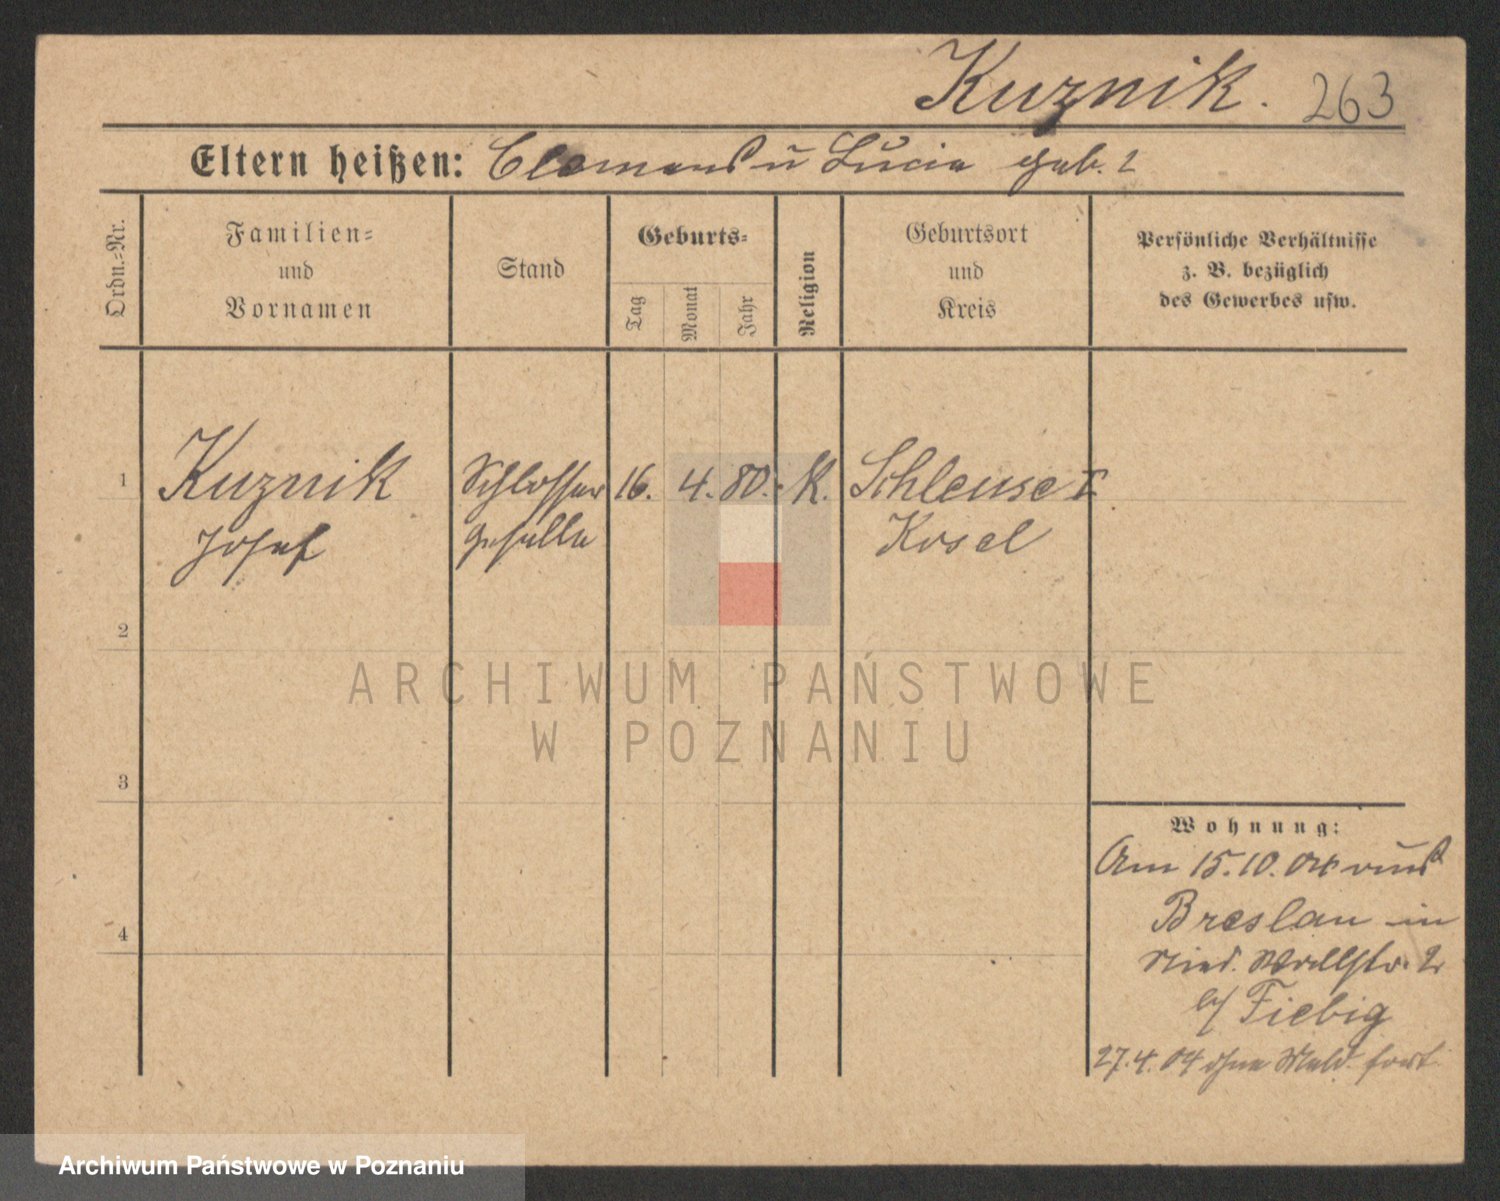 Kuznik. 263
Eltern heißen: Clemens u Lucia geb. ?
Ordn.-Nr.
Familien-
und
Vornamen
Stand
Geburts-
Tag
Monat
Jahr
Religion
Geburtsort
und
Kreis
Persönliche Verhältnisse
z. B. bezüglich
des Gewerbes usw.
1 Kuznik Schlosser 16. 4. 80. K. Schleuse I
Josef geselle Kosel
2
3
4
Wohnung:
Am 15.10. 04 aus
Breslau in
Nied. Wallstr. 2
b/ Fiebig
27.4.04 ohne Meld. fort
ARCHIWUM PAŃSTWOWE
W POZNANIU
Archiwum Państwowe w Poznaniu